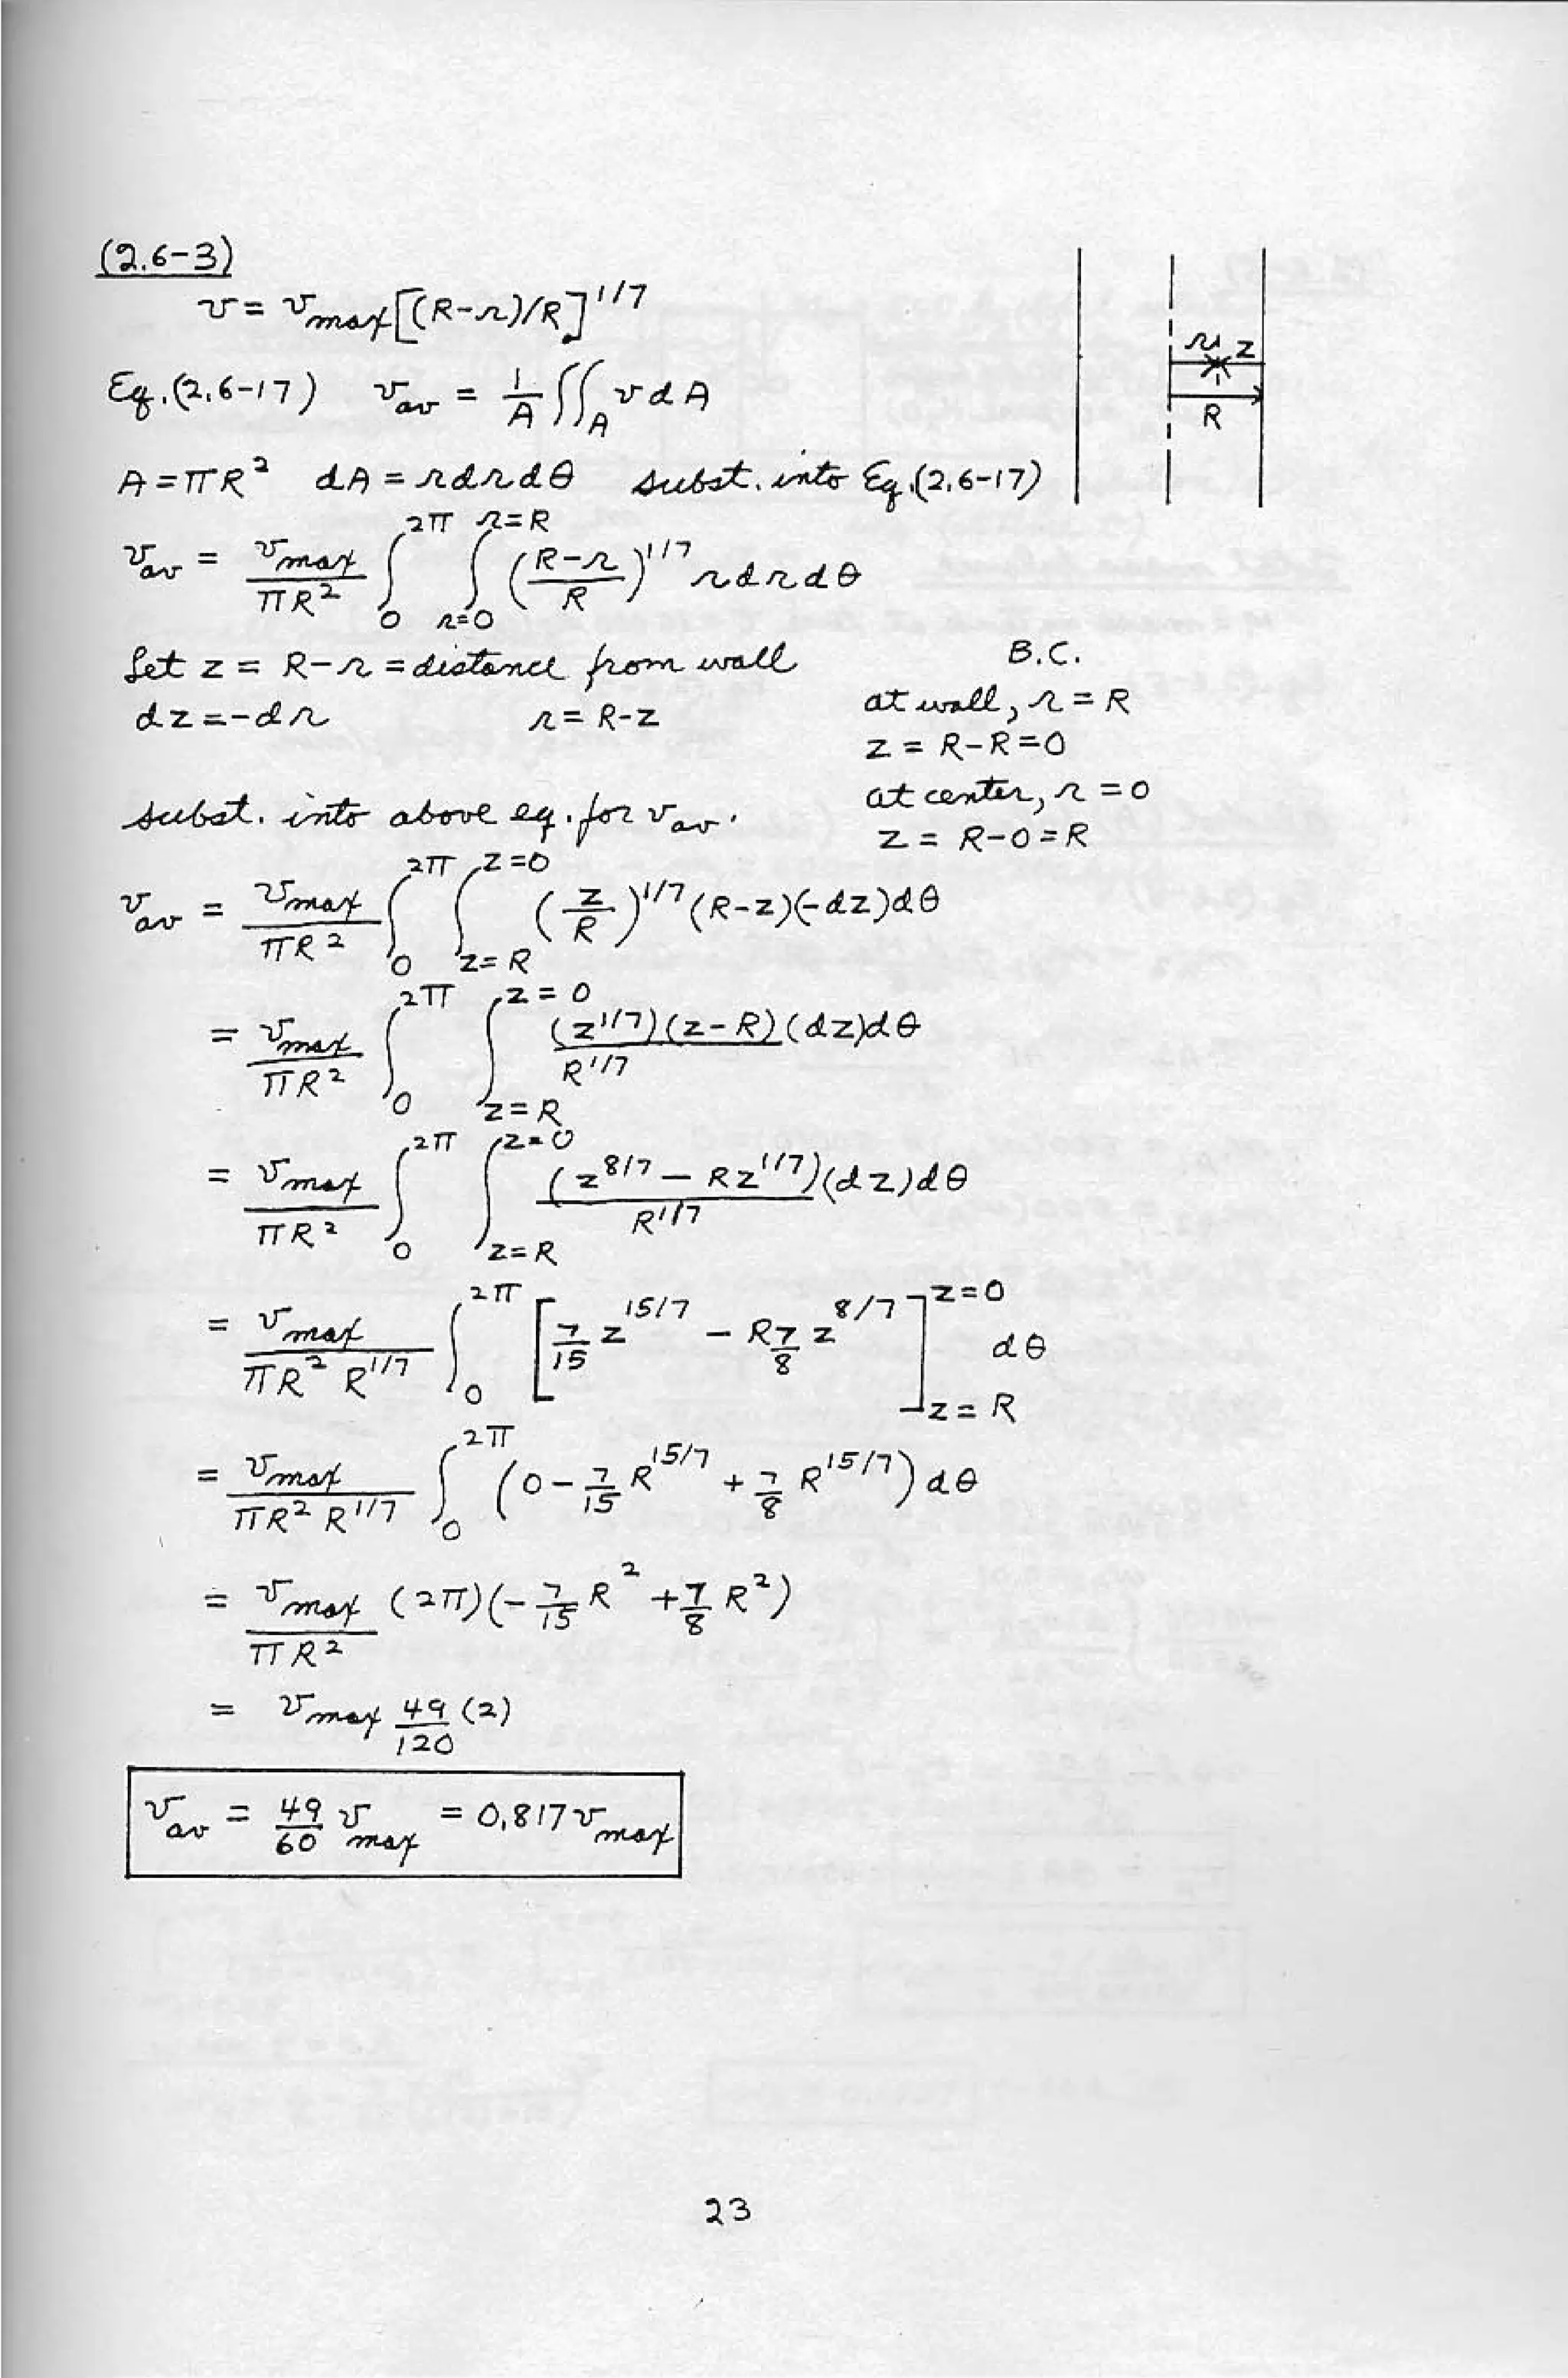 (2.6-3)
v = v_max [(R-r)/R]^1/7
Eq.(2.6-17) v_av = 1/A ∬_A v dA
r z
R
A = πR² dA = r dr dθ subst. into Eq.(2.6-17)
v_av = v_max/πR² ∫_0^2π ∫_r=0^r=R ((R-r)/R)^1/7 r dr dθ
Let z = R-r = distance from wall
dz = -dr r = R-z
B.C.
at wall, r = R
z = R-R = 0
at center, r = 0
z = R-0 = R
subst. into above eq. for v_av.
v_av = v_max/πR² ∫_0^2π ∫_z=R^z=0 (z/R)^1/7 (R-z)(-dz)dθ
= v_max/πR² ∫_0^2π ∫_z=R^z=0 (z^1/7)(z-R)/R^1/7 (dz)dθ
= v_max/πR² ∫_0^2π ∫_z=R^z=0 (z^8/7 - Rz^1/7)/R^1/7 (dz)dθ
= v_max/πR² R^1/7 ∫_0^2π [7/15 z^15/7 - R 7/8 z^8/7]_z=R^z=0 dθ
= v_max/πR² R^1/7 ∫_0^2π (0 - 7/15 R^15/7 + 7/8 R^15/7) dθ
= v_max/πR² (2π)(-7/15 R² + 7/8 R²)
= v_max 49/120 (2)
v_av = 49/60 v_max = 0.817 v_max
23